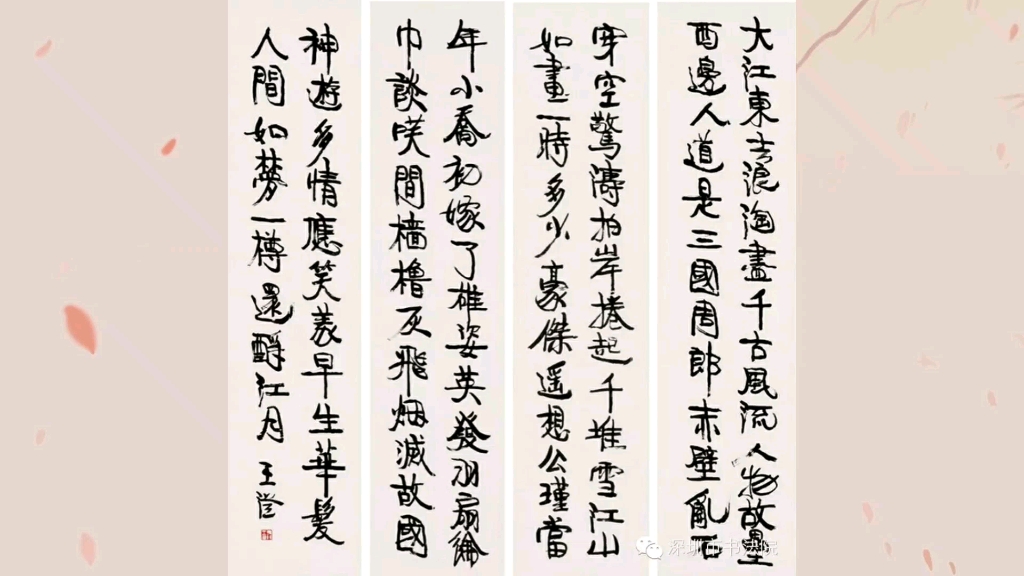 大江東去浪淘盡千古風流人物故壘
西邊人道是三國周郎赤壁亂石
穿空驚濤拍岸捲起千堆雪江山
如畫一時多少豪傑遥想公瑾當
年小喬初嫁了雄姿英發羽扇綸
巾談咲間檣櫓灰飛烟滅故國
神遊多情應笑我早生華髮
人間如夢一樽還酹江月 王澄
深圳市书法院